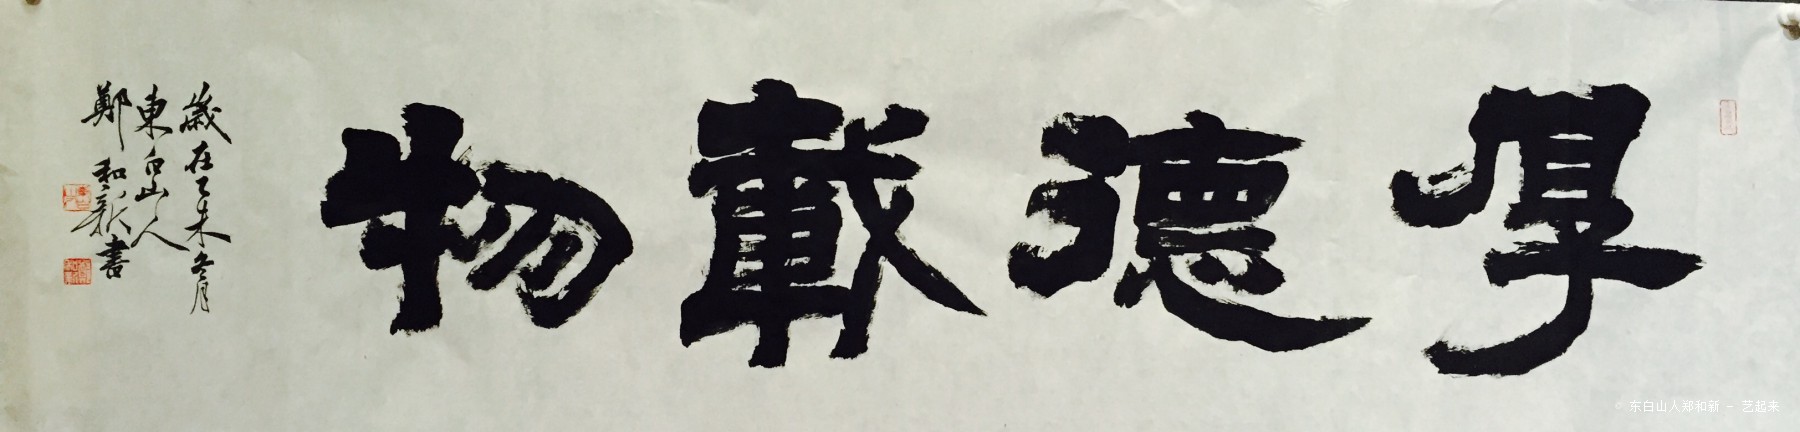 厚德載物
歲在乙未冬月
東白山人
鄭和新書
© 东白山人郑和新 - 艺起来